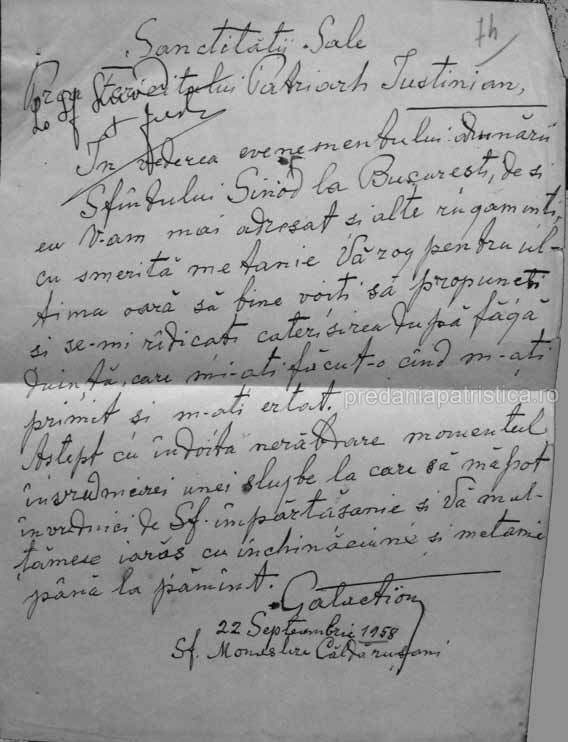 74
Sanctității Sale
Stareițului Patriarh Justinian,
În vederea evenementului adunării
Sfîntului Sinod la București, de și
eu V-am mai adresat și alte rugăminți,
cu smerită metanie Vă rog pentru ul-
tima oară să bine voiți să propuneți
și se-mi rîdicați caterisirea după făgă
duință, care mi-ați făcut-o cînd m-ați
primit și m-ați ertat.
Aștept cu îndoită nerăbdare momentul
învrednicirei unei slujbe la care să mă pot
învrednici de Sf. împărtășanie și Vă mul-
țămesc iarăș cu închinăciune și metanie
până la pămînt.
Galaction
22 Septembrie 1958
Sf. Monastire Căldărușani
predaniapatristica.ro